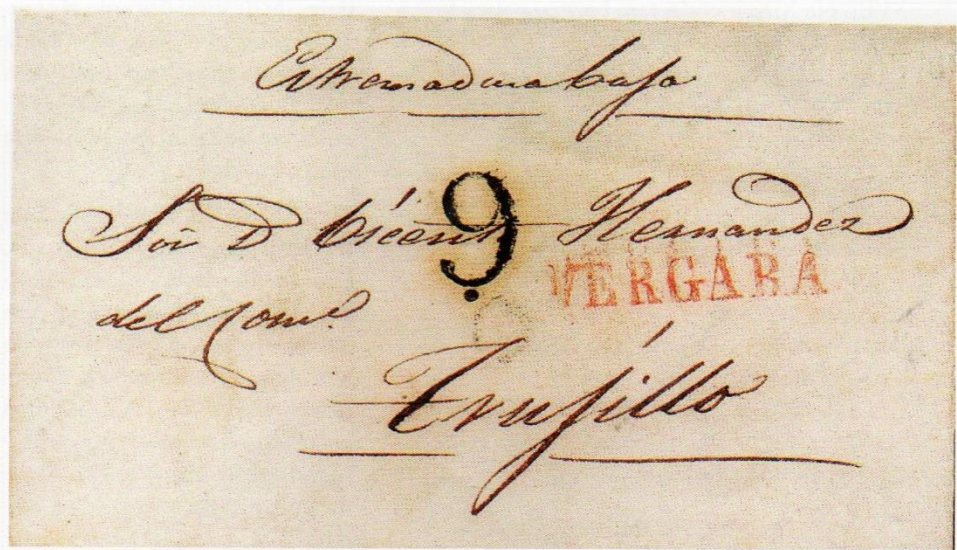 Extremadura baja
Sor D Vicente Hernandez
9.
VERGABA
del Come.
Trujillo